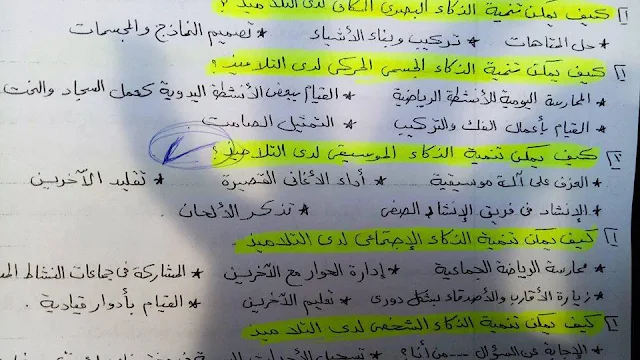 كيف يمكن تنمية الذكاء البصرى المكانى لدى التلاميذ ؟
* حل المتاهات * تركيب وبناء الأشياء * تصميم النماذج والمجسمات
كيف يمكن تنمية الذكاء الجسمى الحركى لدى التلاميذ ؟
* الممارسة اليومية للأنشطة الرياضية * القيام ببعض الأنشطة اليدوية كعمل السجاد والنحت
* القيام بأعمال الفك والتركيب * التمثيل الصامت
كيف يمكن تنمية الذكاء الموسيقى لدى التلاميذ ؟
* العزف على آلة موسيقية * أداء الأغانى القصيرة * تقليد الآخرين
* الإنشاد فى فريق الإنشاد الصفى * تذكر الألحان .
كيف يمكن تنمية الذكاء الإجتماعى لدى التلاميذ .
* ممارسة الرياضة الجماعية * إدارة الحوار مع الآخرين * المشاركة فى جماعات النشاط
* زيارة الأقارب والأصدقاء بشكل دورى * تعليم الآخرين * القيام بأدوار قيادية .
كيف يمكن تنمية الذكاء الشخصى لدى التلاميذ
* الإجابة عن السؤال ---- من أنا ؟ * تسجيل الأحداث